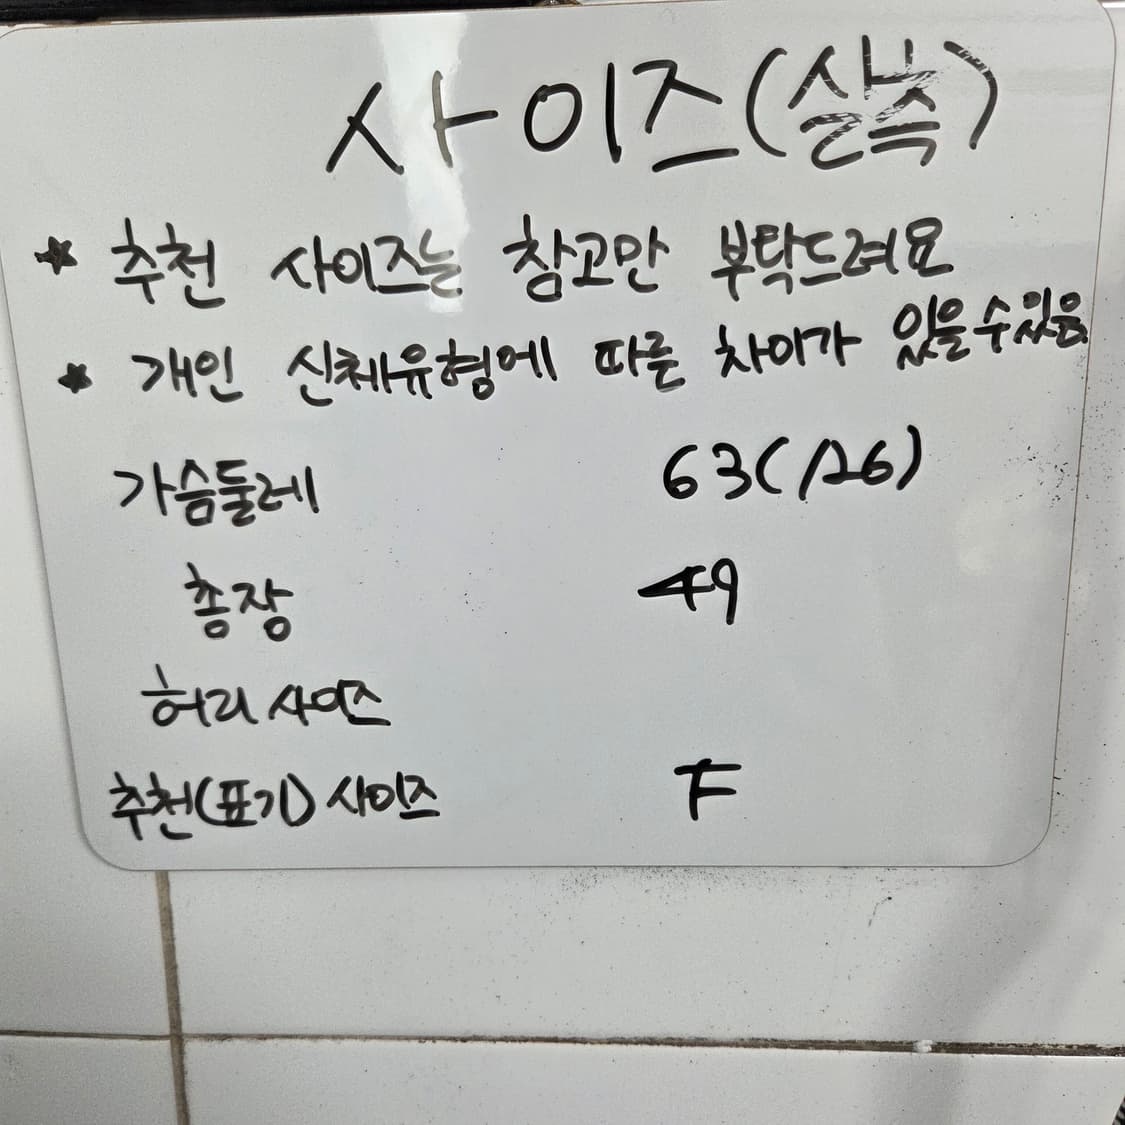 사이즈(실측)
★ 추천 사이즈는 참고만 부탁드려요
★ 개인 신체유형에 따른 차이가 있을수있음.
가슴둘레 63(126)
총장 49
허리 사이즈
추천(표기) 사이즈 F